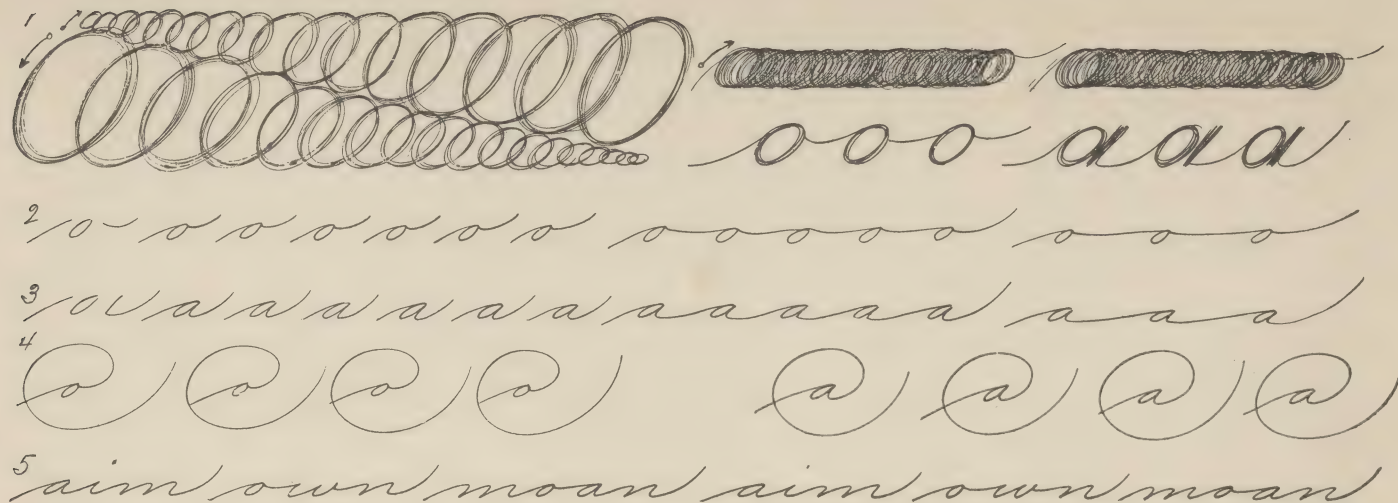 1 o o o a a a
2 o o o o o o o o o o o o o o o
3 o a a a a a a a a a a a a a a
4 o o o o a a a a
5 aim own moan aim own moan